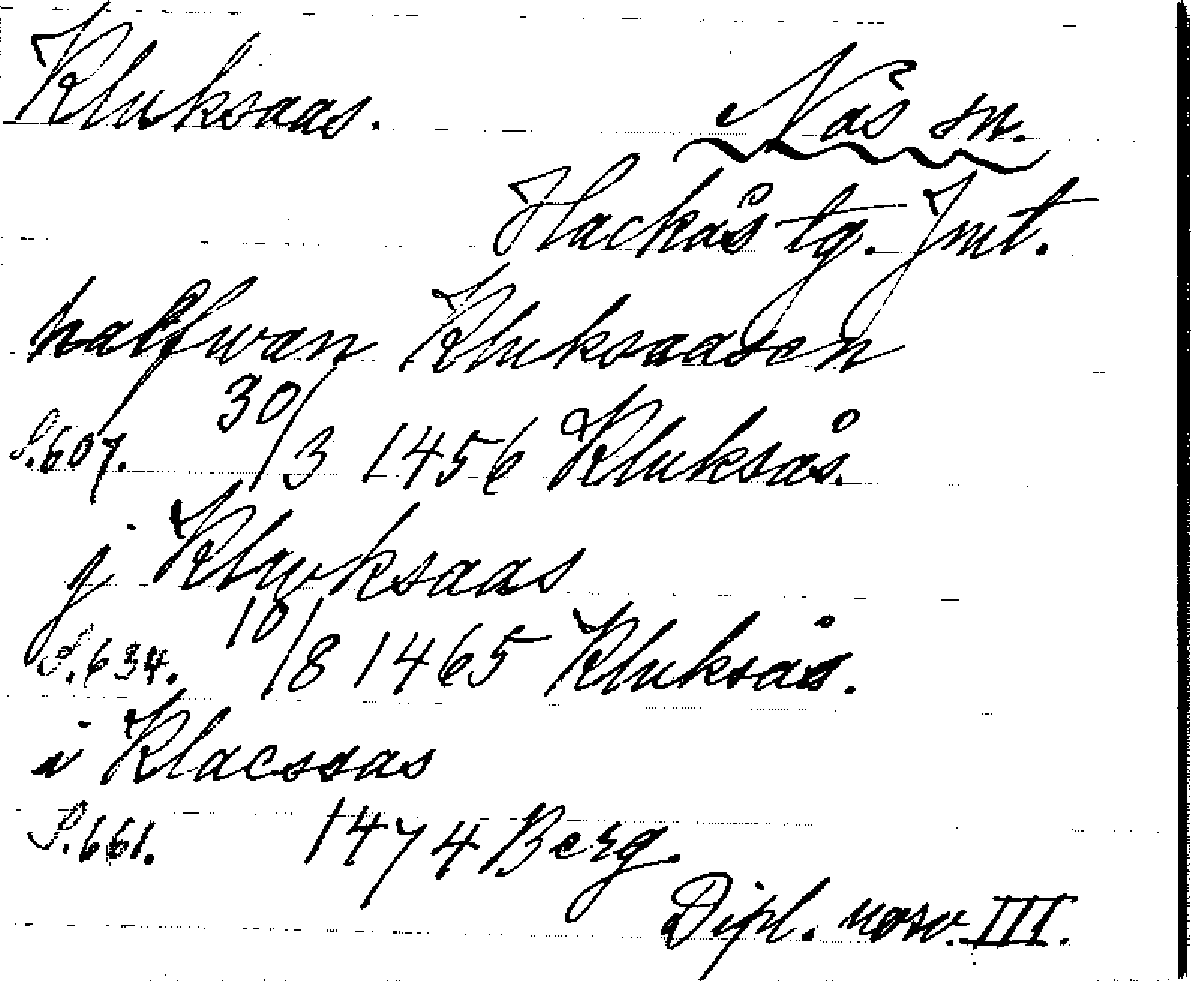 Kluksaas. Näs sn.
Hackås tg. Jmt.
halfwan Kluksaasen
S.607. 30/3 1456 Kluksås.
j Klwksaas
S.634. 10/8 1465 Kluksås.
i Klacssas
S.661. 1474 Berg.
Dipl. norv. III.